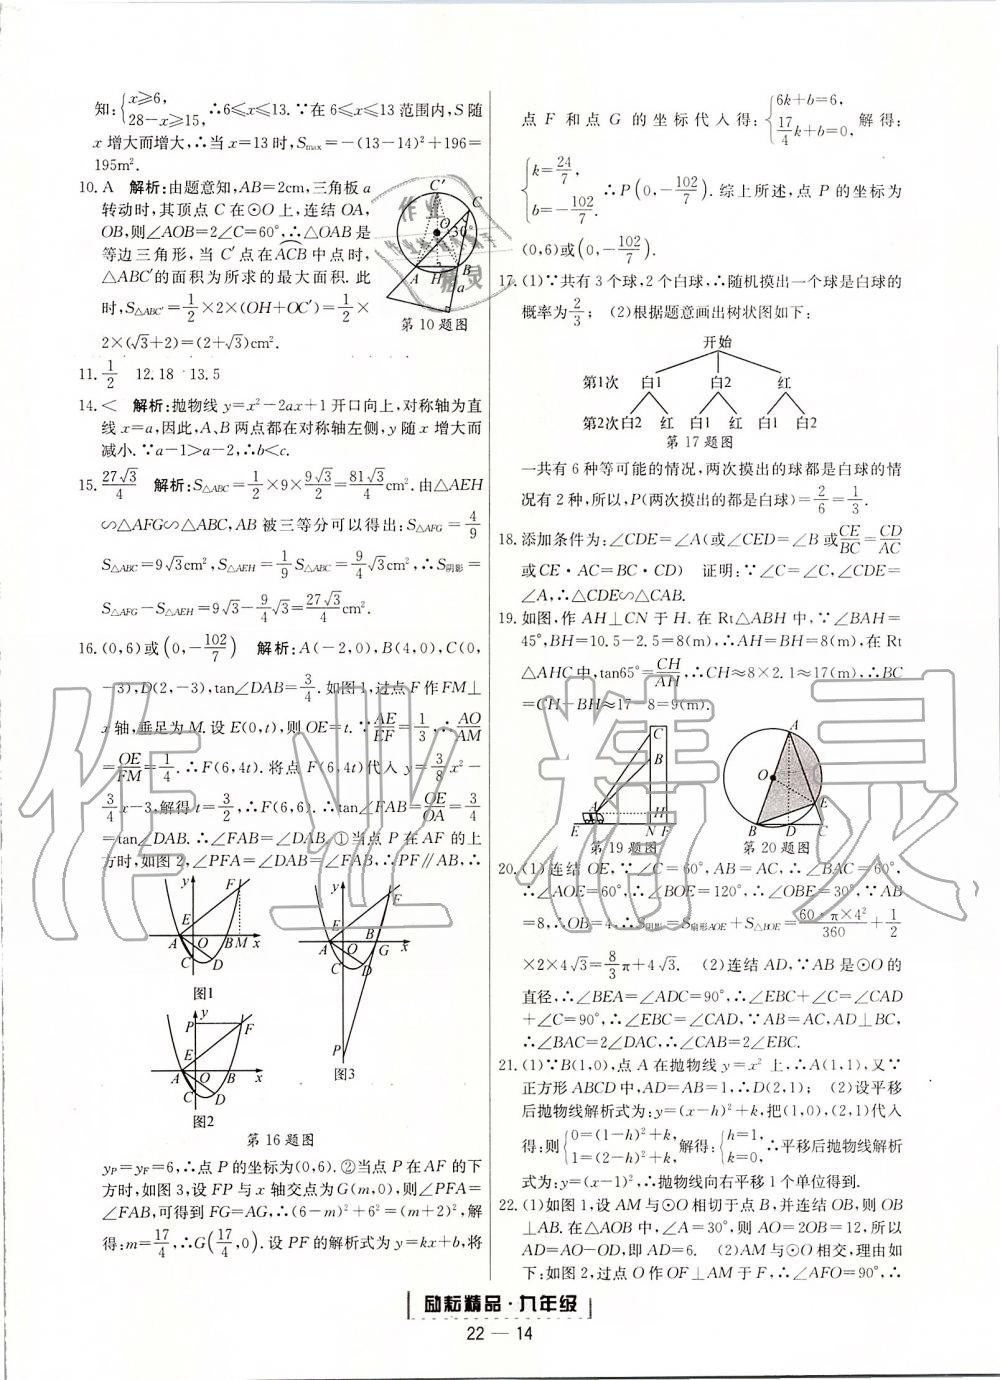 知:{x≥6, 28-x≥15, ∴6≤x≤13.∵在 6≤x≤13 范围内,S 随
x 增大而增大,∴当 x=13 时,Smax=-(13-14)²+196=
195m².
10. A 解析:由题意知,AB=2cm,三角板 a
转动时,其顶点 C 在⊙O 上,连结 OA,
OB,则∠AOB=2∠C=60°,∴△OAB 是
等边三角形,当 C′ 点在 ACB 中点时,
△ABC′的面积为所求的最大面积.此
时,S△ABC′=1/2×2×(OH+OC′)=1/2×
2×(√3+2)=(2+√3)cm².
第 10 题图
11. 1/2 12. 18 13. 5
14. < 解析:抛物线 y=x²-2ax+1 开口向上,对称轴为直
线 x=a,因此,A、B 两点都在对称轴左侧,y 随 x 增大而
减小.∵a-1>a-2,∴b<c.
15. 27√3/4 解析:S△ABC=1/2×9×9√3/2=81√3/4cm².由△AEH
∽△AFG∽△ABC,AB 被三等分可以得出:S△AFG=4/9
S△ABC=9√3cm²,S△AEH=1/9S△ABC=9/4√3cm²,∴S阴影=
S△AFG-S△AEH=9√3-9/4√3=27√3/4cm².
16. (0,6)或(0,-102/7) 解析:A(-2,0),B(4,0),C(0,
-3),D(2,-3),tan∠DAB=3/4.如图 1,过点 F 作 FM⊥
x 轴,垂足为 M.设 E(0,t),则 OE=t.∵AE/EF=1/3,∴AO/AM
=OE/FM=1/4.∴F(6,4t).将点 F(6,4t)代入 y=3/8x²-
3/4x-3,解得 t=3/2,∴F(6,6).∴tan∠FAB=OE/OA=3/4
=tan∠DAB.∴∠FAB=∠DAB.①当点 P 在 AF 的上
方时,如图 2,∠PFA=∠DAB=∠FAB,∴PF∥AB,∴
图1
图2
图3
第 16 题图
yP=yF=6,∴点 P 的坐标为(0,6).②当点 P 在 AF 的下
方时,如图 3,设 FP 与 x 轴交点为 G(m,0),则∠PFA=
∠FAB,可得到 FG=AG,∴(6-m)²+6²=(m+2)²,解
得:m=17/4,∴G(17/4,0).设 PF 的解析式为 y=kx+b,将
点 F 和点 G 的坐标代入得:{6k+b=6, 17/4k+b=0, 解得:
{k=24/7, b=-102/7. ∴P(0,-102/7).综上所述,点 P 的坐标为
(0,6)或(0,-102/7).
17. (1)∵共有 3 个球,2 个白球,∴随机摸出一个球是白球的
概率为2/3; (2)根据题意画出树状图如下:
开始
第1次 白1 白2 红
第2次 白2 红 白1 红 白1 白2
第 17 题图
一共有 6 种等可能的情况,两次摸出的球都是白球的情
况有 2 种,所以,P(两次摸出的都是白球)=2/6=1/3.
18. 添加条件为:∠CDE=∠A(或∠CED=∠B 或CE/BC=CD/AC
或 CE·AC=BC·CD) 证明:∵∠C=∠C,∠CDE=
∠A,∴△CDE∽△CAB.
19. 如图,作 AH⊥CN 于 H.在 Rt△ABH 中,∵∠BAH=
45°,BH=10.5-2.5=8(m),∴AH=BH=8(m),在 Rt
△AHC 中,tan65°=CH/AH,∴CH≈8×2.1≈17(m),∴BC
=CH-BH≈17-8=9(m).
第 19 题图
第 20 题图
20. (1)连结 OE,∵∠C=60°,AB=AC,∴∠BAC=60°,
∴∠AOE=60°,∴∠BOE=120°,∴∠OBE=30°,∵AB
=8,∴OB=4,∴S阴影=S扇形AOE+S△BOE=60·π×4²/360+1/2
×2×4√3=8/3π+4√3. (2)连结 AD,∵AB 是⊙O 的
直径,∴∠BEA=∠ADC=90°,∴∠EBC+∠C=∠CAD
+∠C=90°,∴∠EBC=∠CAD,∵AB=AC,AD⊥BC,
∴∠BAC=2∠DAC,∴∠CAB=2∠EBC.
21. (1)∵B(1,0),点 A 在抛物线 y=x² 上,∴A(1,1),又∵
正方形 ABCD 中,AD=AB=1,∴D(2,1); (2)设平移
后抛物线解析式为:y=(x-h)²+k,把(1,0),(2,1)代入
得:则{0=(1-h)²+k, 1=(2-h)²+k, 解得:{h=1, k=0, ∴平移后抛物线解析
式为:y=(x-1)²,∴抛物线向右平移 1 个单位得到.
22. (1)如图 1,设 AM 与⊙O 相切于点 B,并连结 OB,则 OB
⊥AB.在△AOB 中,∠A=30°,则 AO=2OB=12,所以
AD=AO-OD,即 AD=6. (2)AM 与⊙O 相交,理由如
下:如图 2,过点 O 作 OF⊥AM 于 F,∴∠AFO=90°,∴
励耘精品·九年级
22 — 14
作业精灵